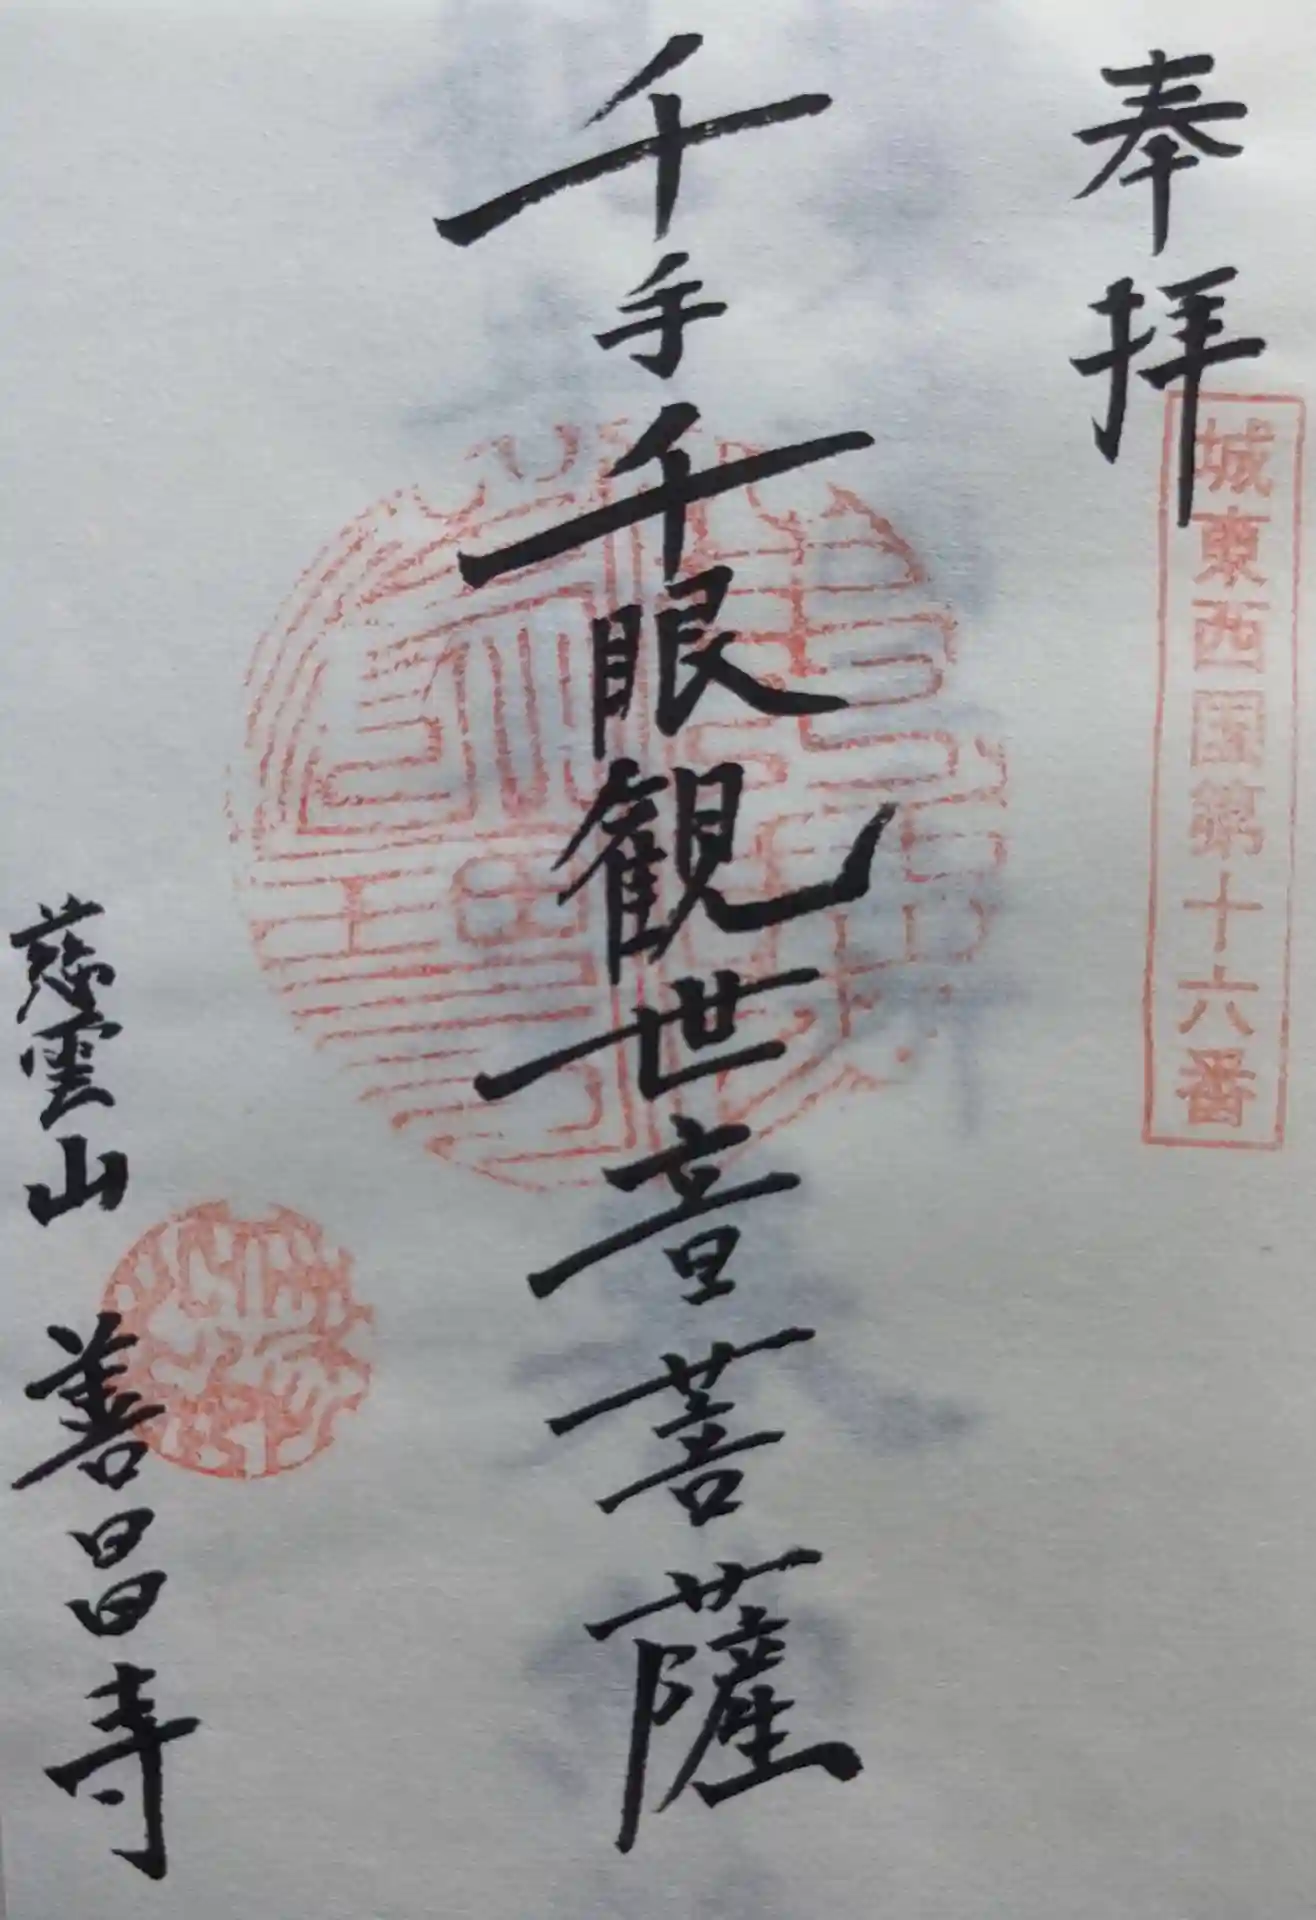 奉拝
城東西国第十六番
千手千眼観世音菩薩
慈雲山 善昌寺